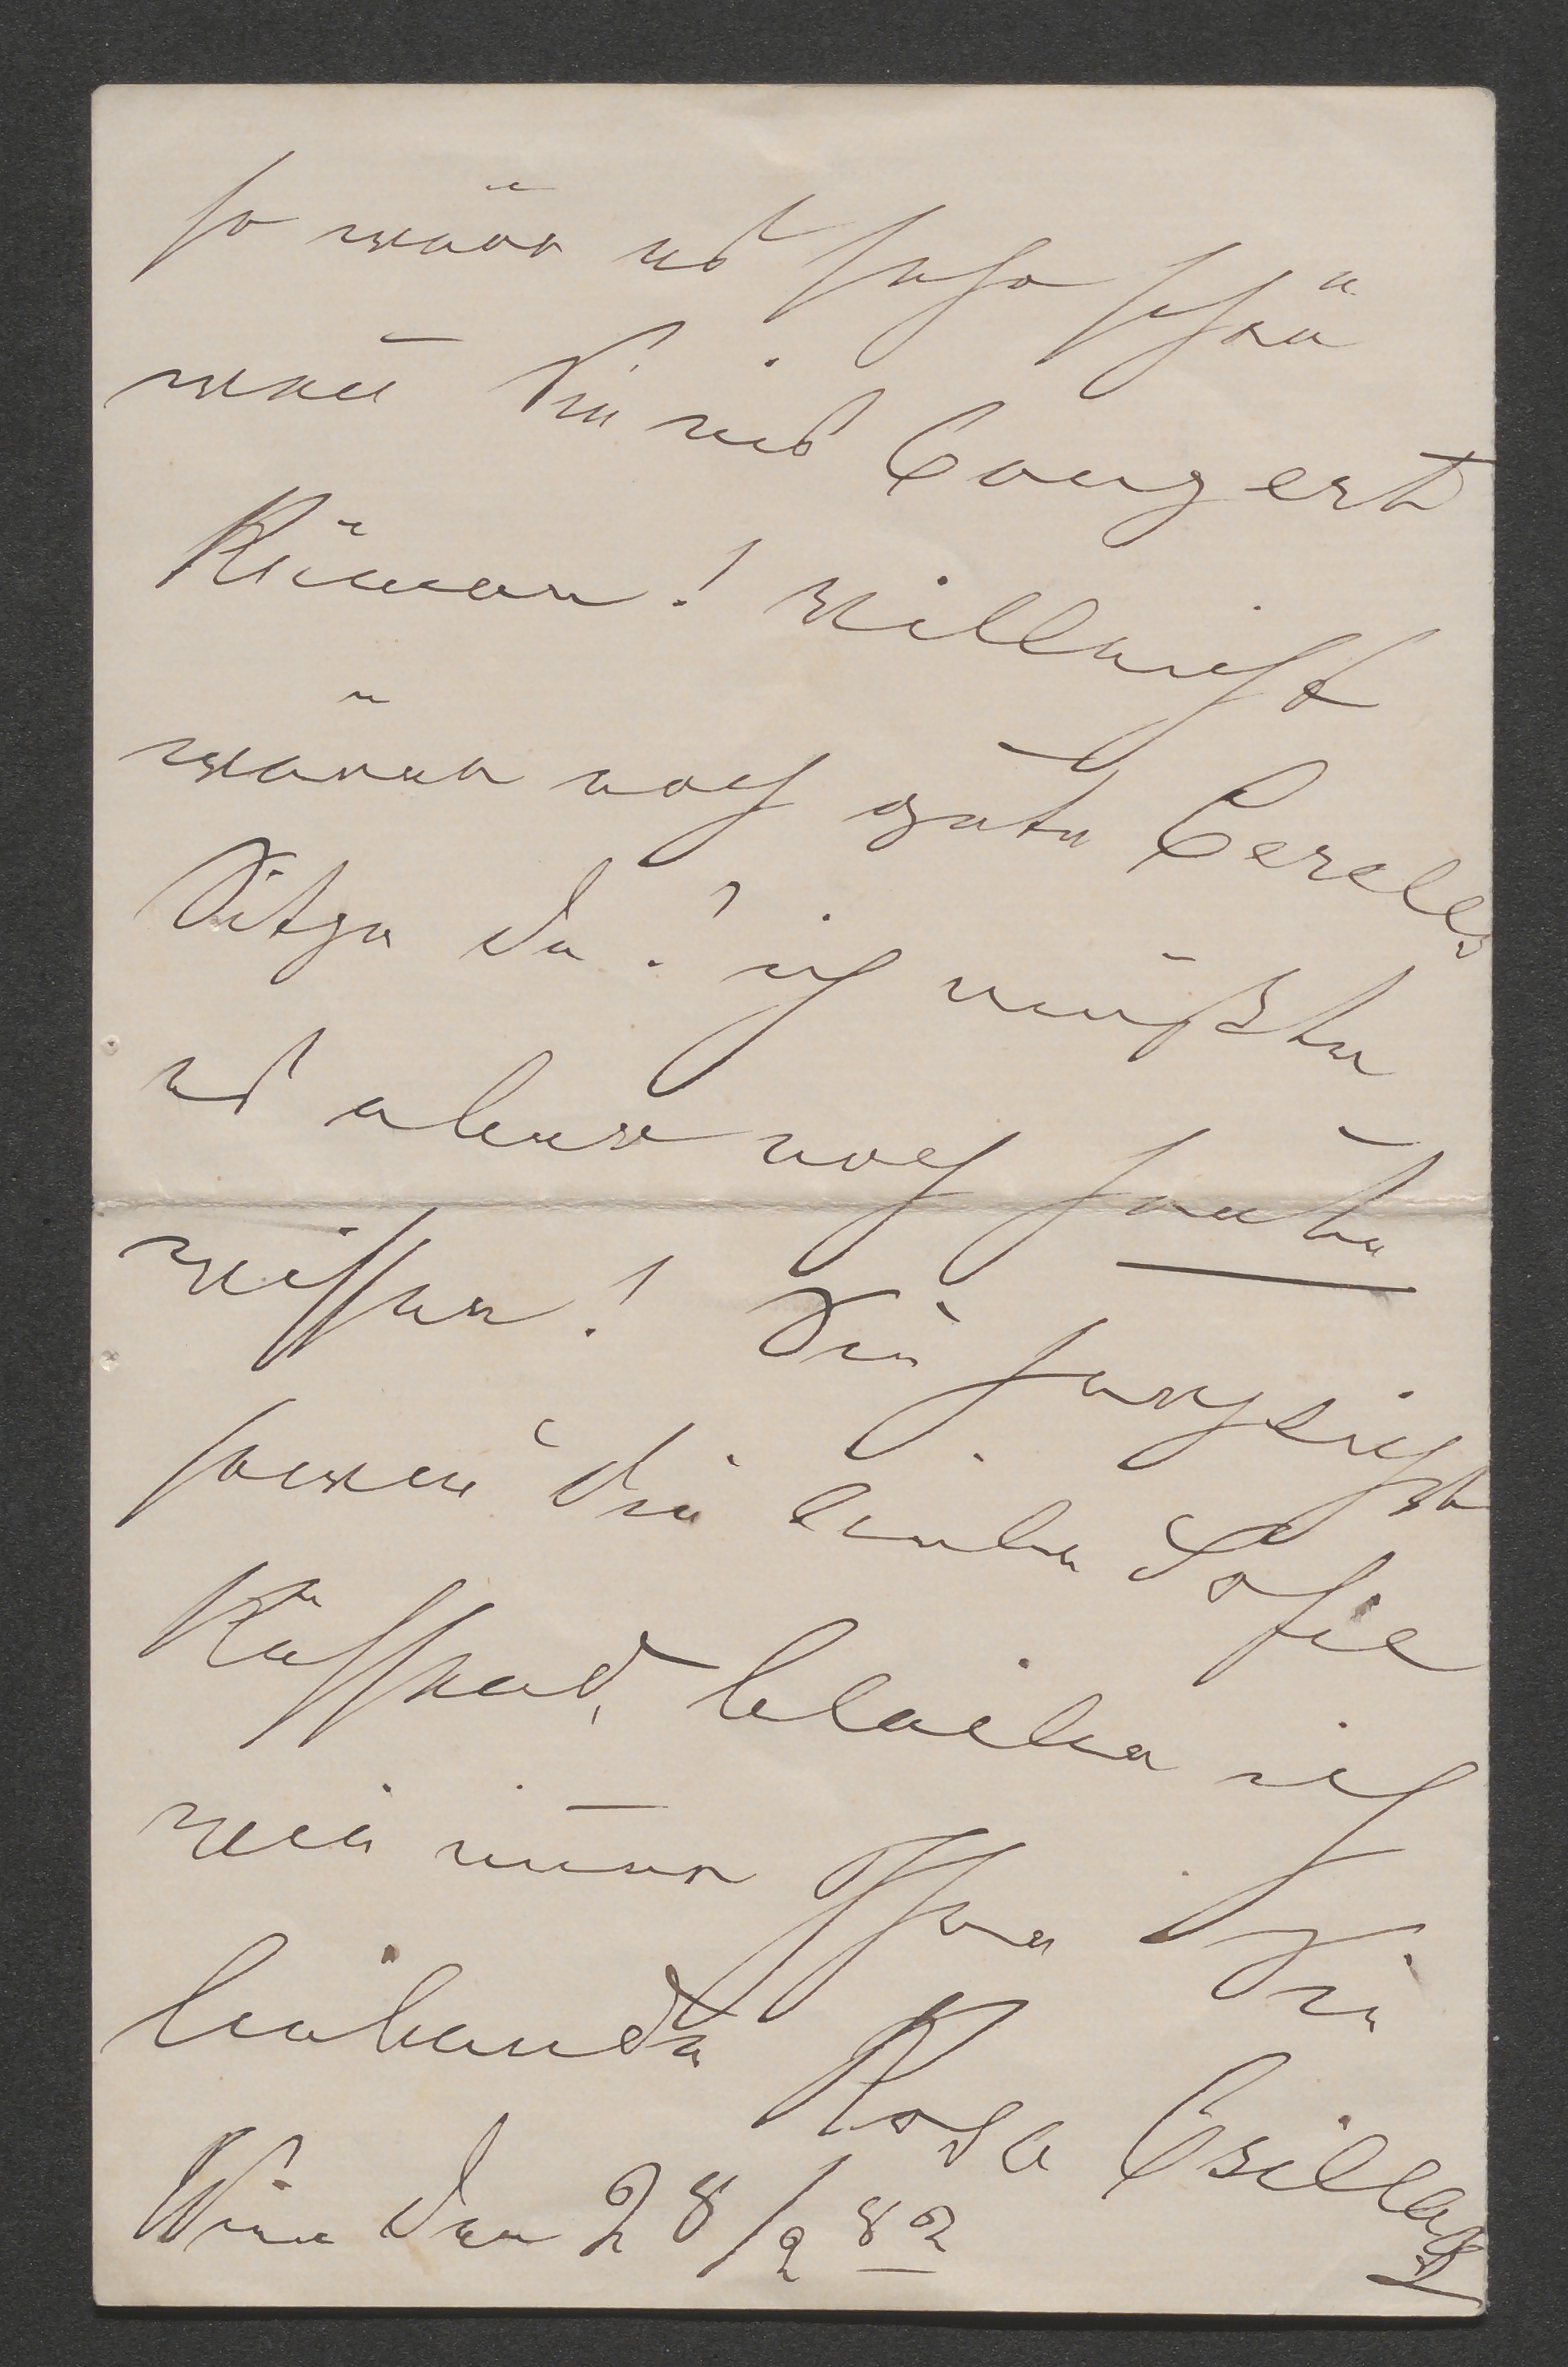 so wäre es sehr schön
wen̄ Sie ins Conzert
kämen! vielleicht
wären noch gute Cercle
Sitze da! ich müßte
es aber noch heute
wissen! Sie herzlichst
sowie die liebe Sofie
küssend, bleibe ich
wie im̄er Ihre Sie
liebende Rosa Csillag
Wien den 28/2 82